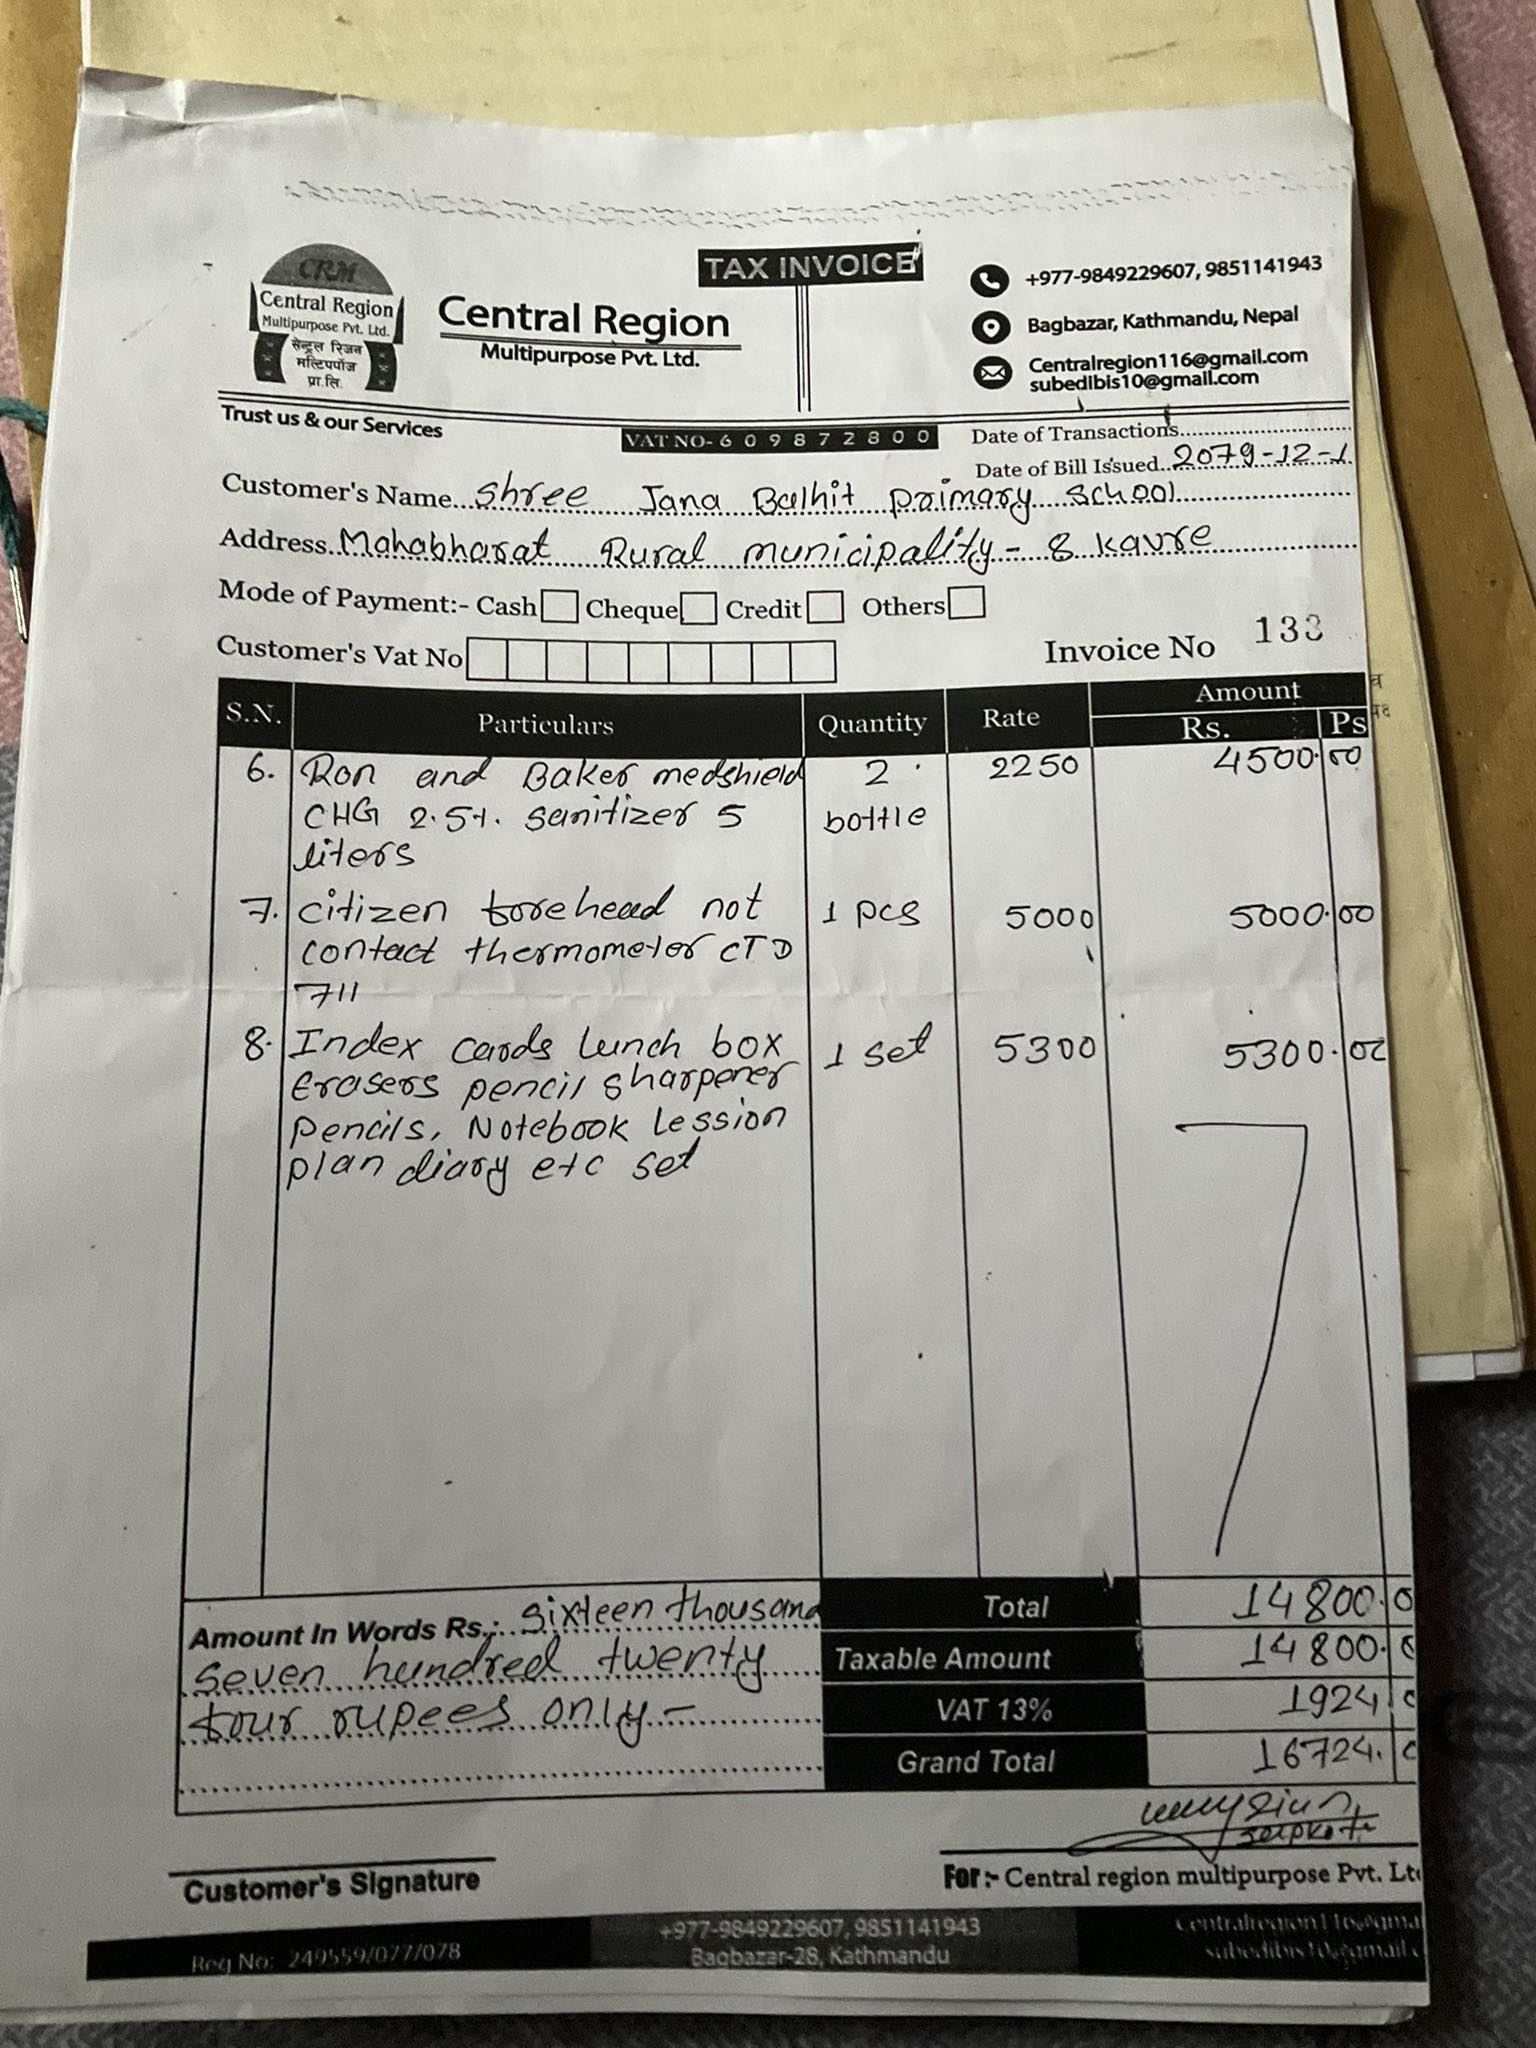 TAX INVOICE
CRM
Central Region
Multipurpose Pvt. Ltd.
सेन्ट्रल रिजन
मल्टिपर्पोज
प्रा.लि.
Central Region
Multipurpose Pvt. Ltd.
+977-9849229607, 9851141943
Bagbazar, Kathmandu, Nepal
Centralregion116@gmail.com
subedibis10@gmail.com
Trust us & our Services
VAT NO- 6 0 9 8 7 2 8 0 0
Date of Transactions
Date of Bill Issued 2079-12-1
Customer's Name Shree Jana Balhit primary school
Address Mahabharat Rural municipality - 8 Kavre
Mode of Payment:- Cash Cheque Credit Others
Customer's Vat No
Invoice No 133
S.N. Particulars Quantity Rate Amount
Rs. Ps
6. Ron and Baker medshield 2 2250 4500.00
CHG 2.5%. sanitizer 5 bottle
liters
7. citizen forehead not 1 pcs 5000 5000.00
contact thermometer CTD
711
8. Index cards lunch box 1 set 5300 5300.00
Erasers pencil sharpener
pencils, Notebook Lession
plan diary etc set
Amount In Words Rs.: Sixteen thousand
seven hundred twenty
four rupees only -
Total 14800.0
Taxable Amount 14800.0
VAT 13% 1924
Grand Total 16724.
Customer's Signature
For :- Central region multipurpose Pvt. Lt
Reg No: 249559/077/078
+977-9849229607, 9851141943
Bagbazar-28, Kathmandu